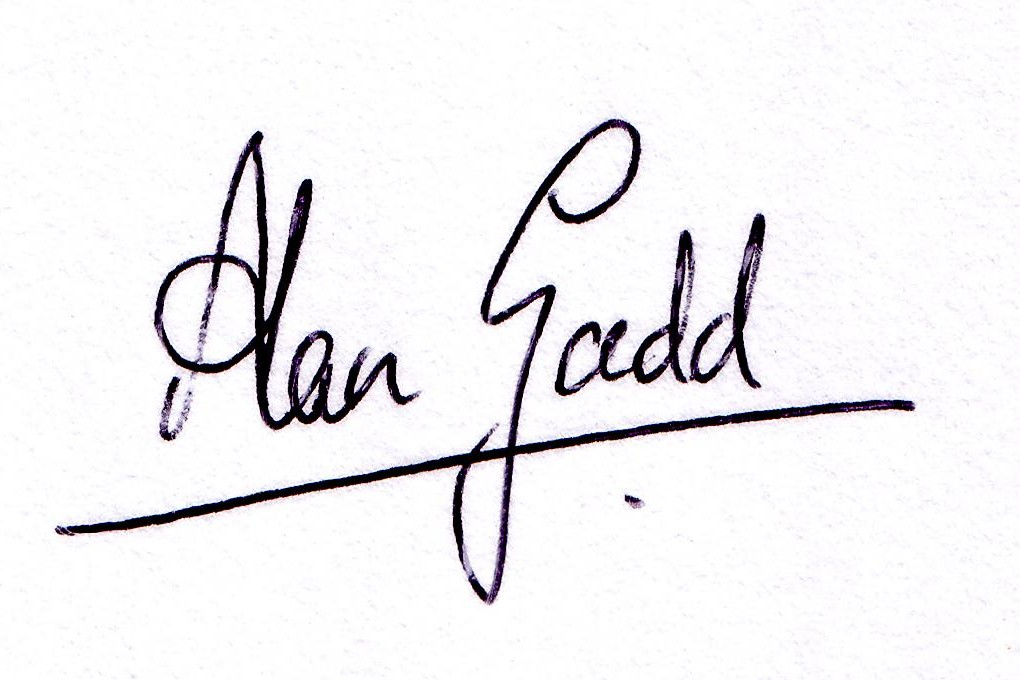 Alan Gadd